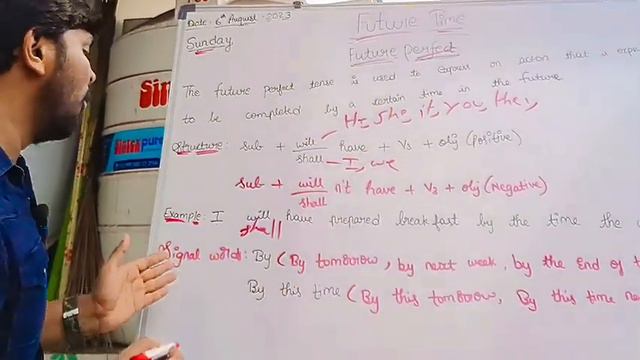 Date: 6th August - 2023
Sunday
Future Time
Future perfect
The future perfect tense is used to express an action that is
to be completed by a certain time in the future
He, She, it, you, they
Structure: sub + will/shall have + V3 + obj (positive)
I, we
sub + will/shall n't have + V3 + obj (Negative)
Example: I will have prepared breakfast by the time the
shall
Signal words: By (By tomorrow, by next week, by the end of
By this time (By this tomorrow, By this time
Sintex pure